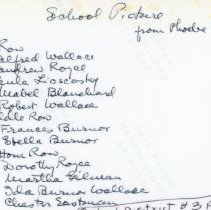 School Picture
from Phoebe
Row
Alfred Wallace
Andrew Royce
Eula Lioscosky
Mabel Blanchard
Robert Wallace
ddle Row
Frances Burnor
Stella Burnor
ttom Row
Dorothy Royce
Martha Gilman
Ida Burnor Wallace
Chester Eastman
District # 3